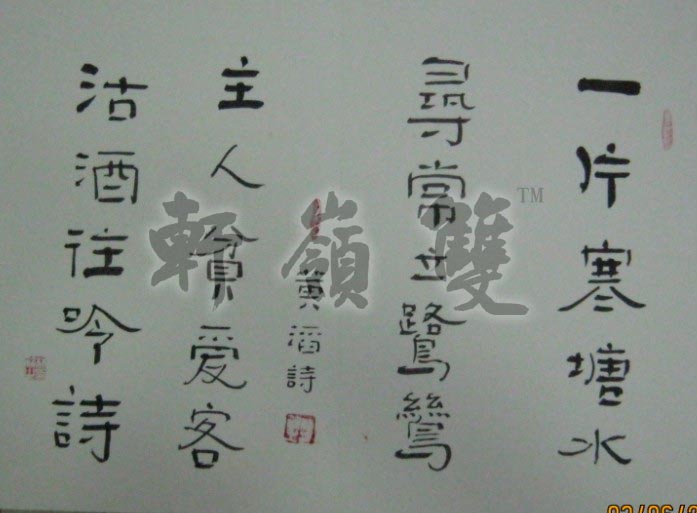 一片寒塘水
尋常立鷺鷥
黃滔詩
主人貧愛客
沽酒往吟詩
雙嶺軒
TM